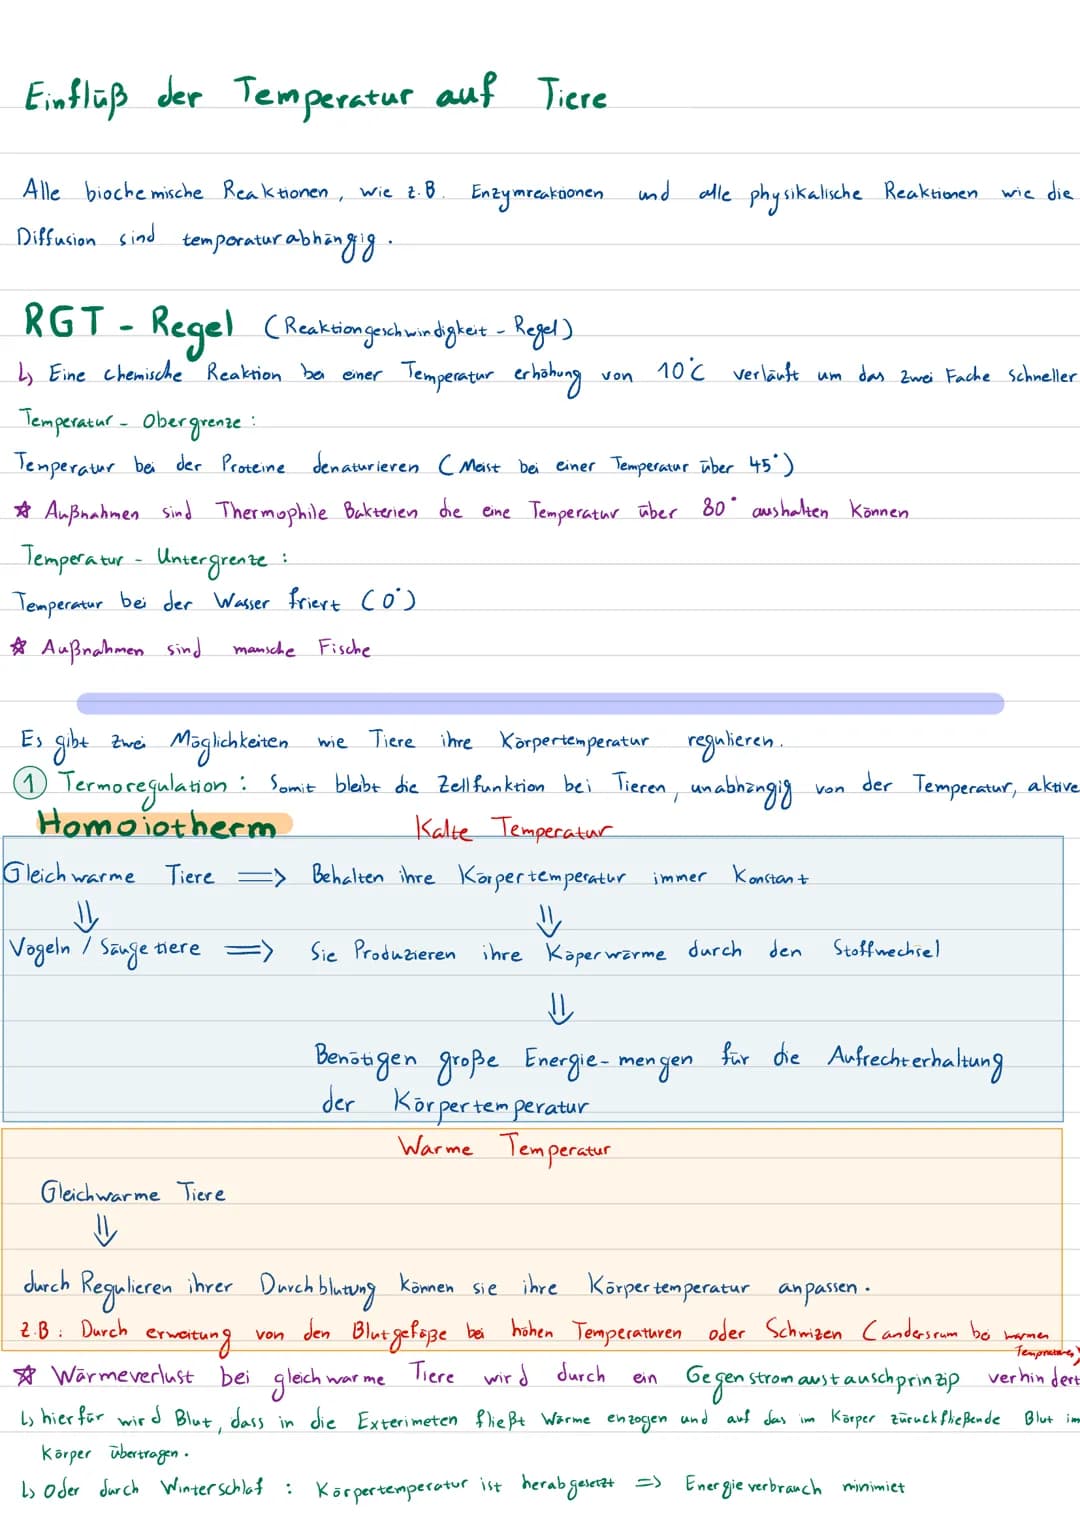 Einflüß der Temperatur auf Tiere
Alle biochemische Reaktionen, wie z.B. Enzymreaktionen und alle physikalische Reaktionen wie die
Diffusion sind temporaturabhängig.
RGT - Regel (Reaktiongeschwindigkeit - Regel)
↳ Eine chemische Reaktion bei einer Temperatur erhöhung von 10°C verläuft um das zwei Fache schneller
Temperatur - Obergrenze :
Temperatur bei der Proteine denaturieren (Meist bei einer Temperatur über 45°)
☆ Außnahmen sind Thermophile Bakterien die eine Temperatur über 80° aushalten können
Temperatur - Untergrenze :
Temperatur bei der Wasser friert (0°)
☆ Außnahmen sind mansche Fische
Es gibt zwei Möglichkeiten wie Tiere ihre Körpertemperatur regulieren.
① Termoregulation : Somit bleibt die Zellfunktion bei Tieren, unabhängig von der Temperatur, aktive
Homoiotherm
Kalte Temperatur
Gleichwarme Tiere => Behalten ihre Körpertemperatur immer Konstant
⇓ ⇓
Vögeln / Säugetiere => Sie Produzieren ihre Köperwärme durch den Stoffwechsel
⇓
Benötigen große Energie-mengen für die Aufrechterhaltung
der Körpertemperatur
Warme Temperatur
Gleichwarme Tiere
⇓
durch Regulieren ihrer Durchblutung können sie ihre Körpertemperatur anpassen.
z.B: Durch erweitung von den Blutgefäße bei höhen Temperaturen oder Schwizen (andersrum bei warmen
Tempraturen)
☆ Wärmeverlust bei gleichwarme Tiere wird durch ein Gegenstromaustauschprinzip verhindert
↳ hierfür wird Blut, dass in die Exterimeten fließt Wärme enzogen und auf das im Körper züruckfließende Blut im
Körper übertragen.
↳ Oder durch Winterschlaf : Körpertemperatur ist herabgesetzt => Energieverbrauch minimiet